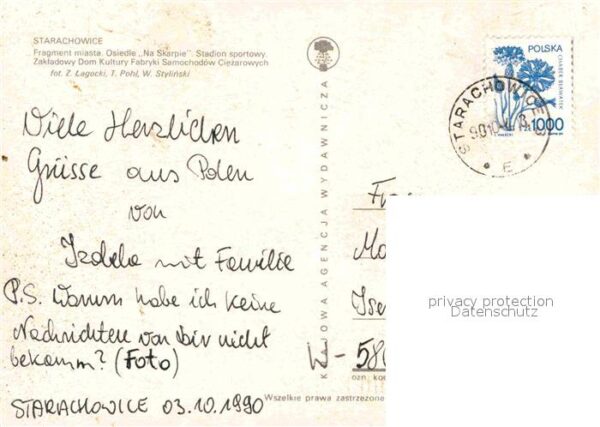 STARACHOWICE
Fragment miasta. Osiedle „Na Skarpie". Stadion sportowy.
Zakładowy Dom Kultury Fabryki Samochodów Ciężarowych
fot. Z. Łagocki, T. Pohl, W. Styliński
Viele Herzlichen
Grüsse aus Polen
von
Izabela mit Familie
P.S. Warum habe ich keine
Nachrichten von Dir nicht
bekomm? (Foto)
STARACHOWICE 03.10.1990
KRAJOWA AGENCJA WYDAWNICZA
POLSKA
CHABER BŁAWATEK
1000
STARACHOWICE
E
Fr
Mo
Ise
W-586
ozn ko
Wszelkie prawa zastrzeżone
privacy protection
Datenschutz